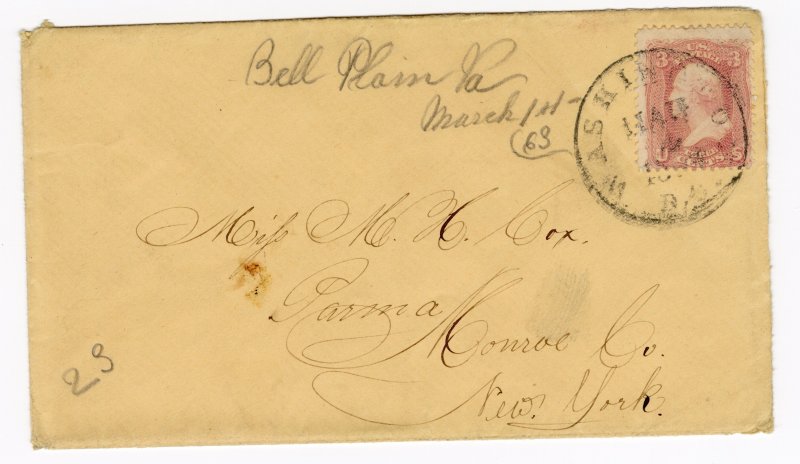 Bell Plain Va
March 1st
63
3 3
U S
WASHIN
MAR
D.C.
Miss M. H. Cox.
Parma
Monroe Co.
New. York.
23